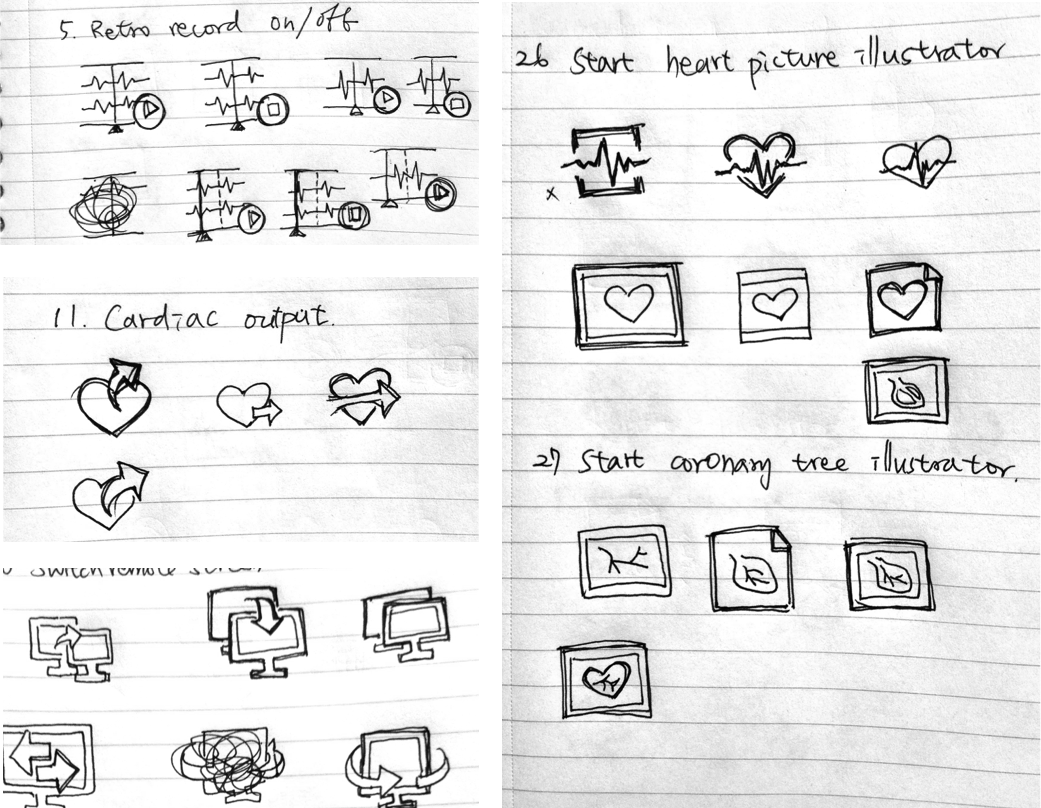 5. Retro record on/off
11. Cardiac output.
Switch remote
26 Start heart picture illustrator
x
27 Start coronary tree illustrator.